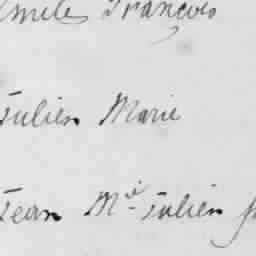 Emile François
Julien Marie
Jean Mie Julien